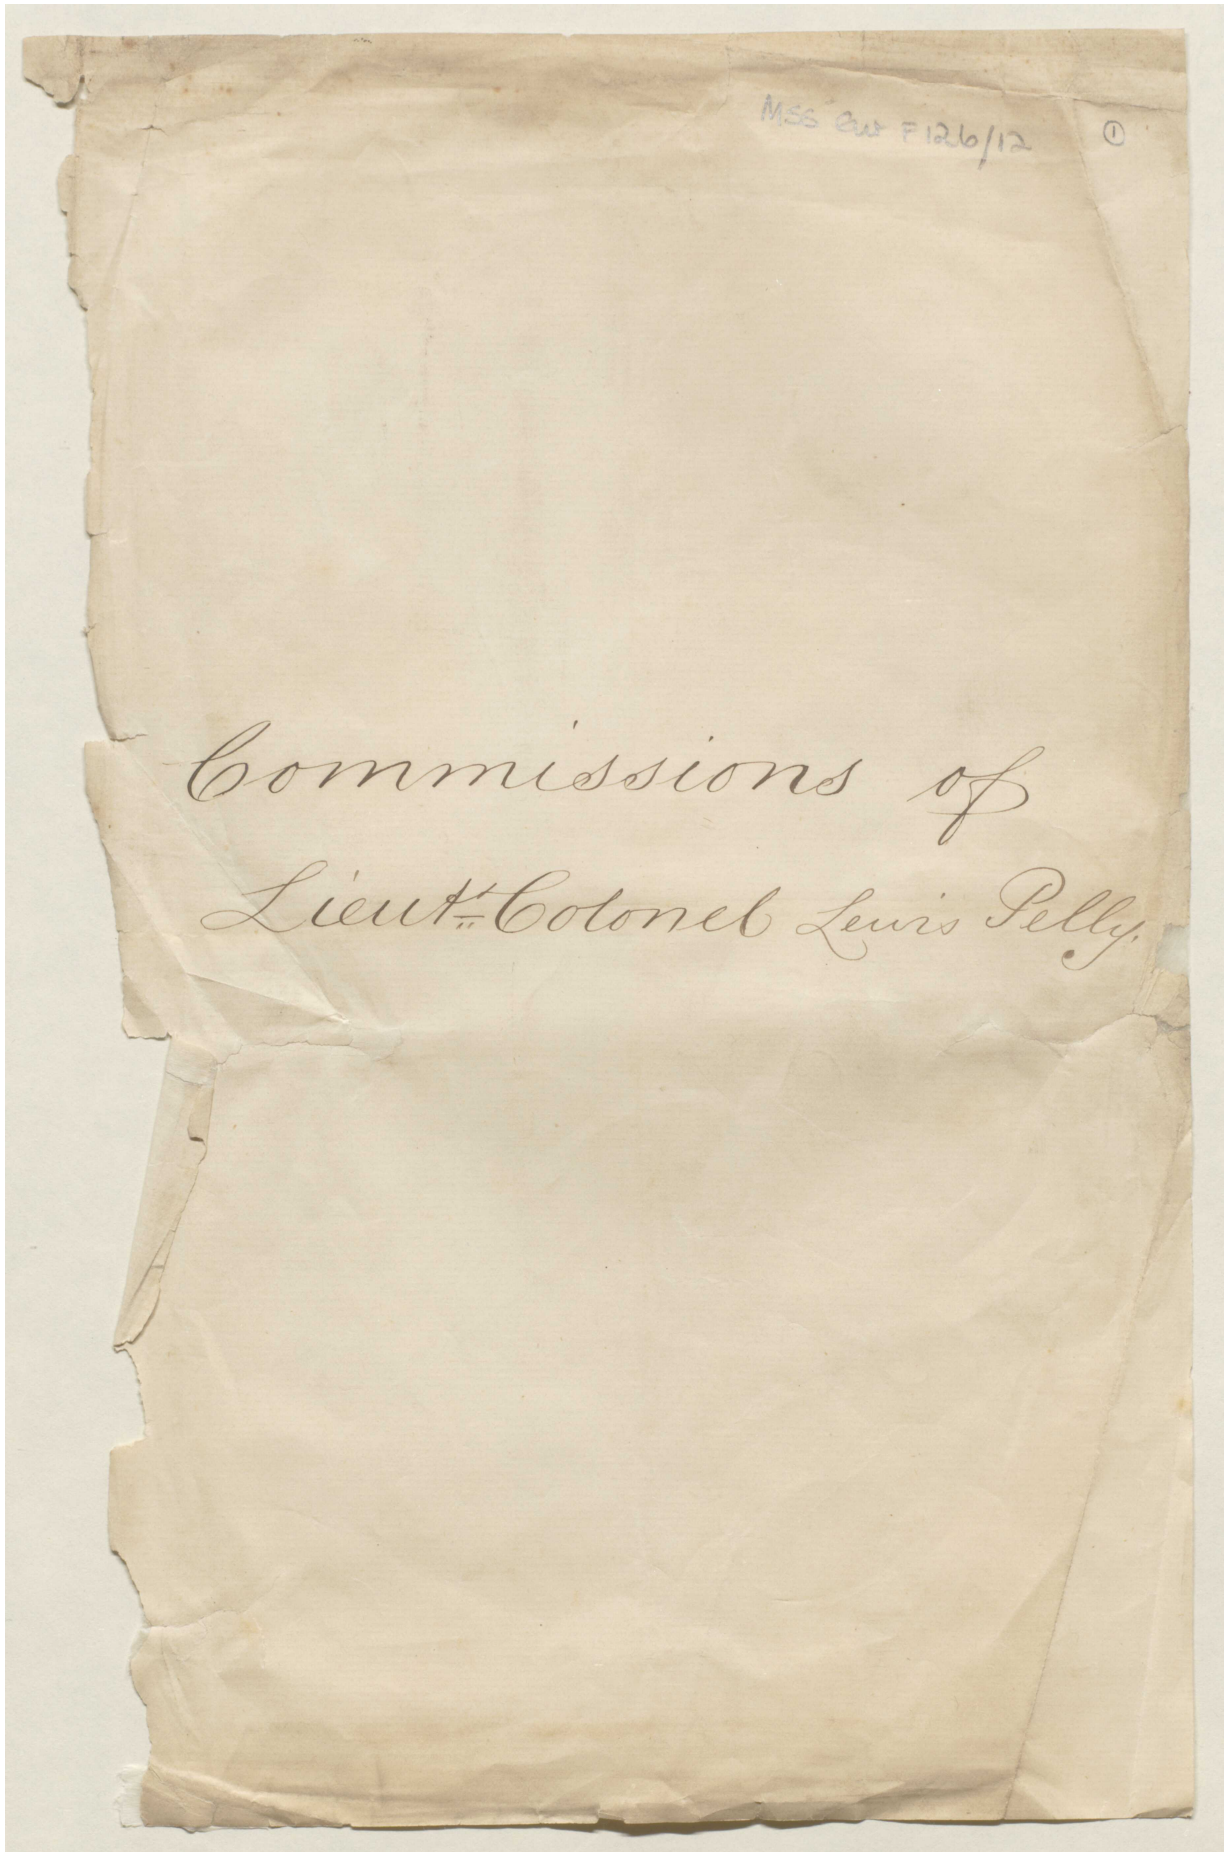 MSS Eur F126/12 1
Commissions of
Lieut.t Colonel Lewis Pelly.